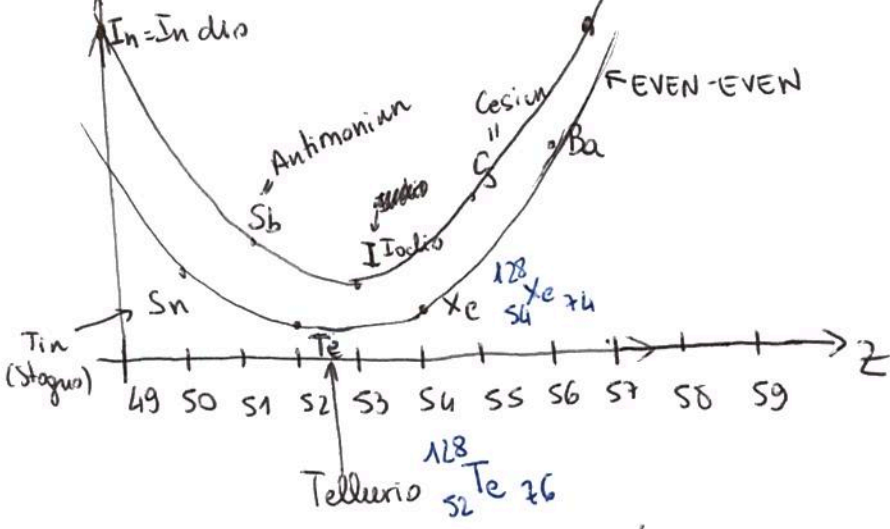 In = Indio
← EVEN-EVEN
Cesium
"
Antimonium
"
Cs
Ba
Sb
I Iodio
Sn
Xe
128 54 Xe 74
Tin
(Stagno)
Te
Z
49 50 51 52 53 54 55 56 57 58 59
Tellurio 128 52 Te 76